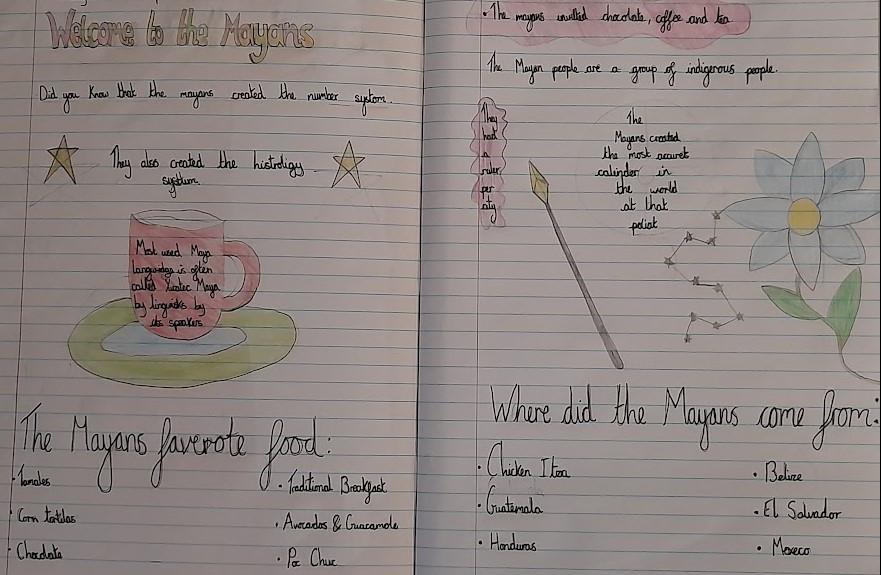 Welcome to the Mayans
Did you know that the mayans created the number system.
They also created the histroligy
systum.
Most used Maya
language is often
called Yucatec Maya
by linguists by
its speakers
The Mayans faverote food:
· Tamales
· Corn tortilas
· Chocolate
· Traditional Breakfast
· Avocados & Guacamole
· Poc Chuc
· The mayans invilted chocolate, coffee and tea
The Mayan people are a group of indigerous people.
They
had
a
ruler
per
city
The
Mayans created
the most accuret
calinder in
the world
at that
poliat
Where did the Mayans come from:
· Chicken Itza
· Guatemala
· Honduras
· Belize
· El Salvador
· Mexeco